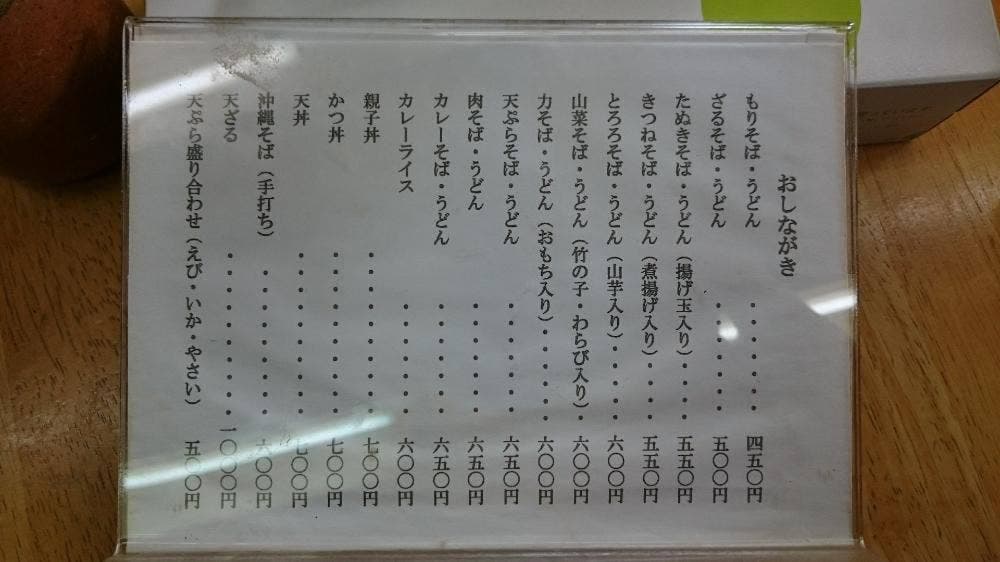 おしながき
もりそば・うどん・・・・・・・四五〇円
ざるそば・うどん・・・・・・・五〇〇円
たぬきそば・うどん（揚げ玉入り）・・・・五五〇円
きつねそば・うどん（煮揚げ入り）・・・・五五〇円
とろろそば・うどん（山芋入り）・・・・・六〇〇円
山菜そば・うどん（竹の子・わらび入り）・六〇〇円
力そば・うどん（おもち入り）・・・・・・六〇〇円
天ぷらそば・うどん・・・・・・・六五〇円
肉そば・うどん・・・・・・・六五〇円
カレーそば・うどん・・・・・・・六五〇円
カレーライス・・・・・・・六〇〇円
親子丼・・・・・・・・・・七〇〇円
かつ丼・・・・・・・・・・七〇〇円
天丼・・・・・・・・・・七〇〇円
沖縄そば（手打ち）・・・・・・・・・六〇〇円
天ざる・・・・・・・・・・一〇〇〇円
天ぷら盛り合わせ（えび・いか・やさい）五〇〇円